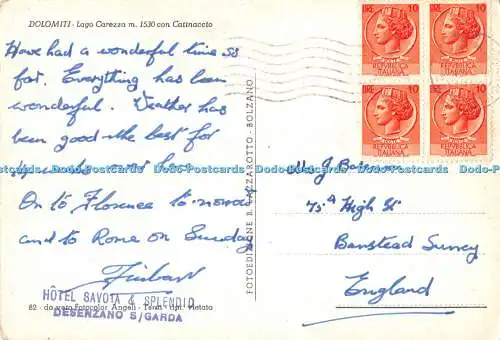 DOLOMITI - Lago Carezza m. 1530 con Catinaccio
Have had a wonderful time so
far. Everything has been
wonderful. Weather has
been good the best for
On to Florence to-morrow
and to Rome on Sunday
HÔTEL SAVOIA & SPLENDID
DESENZANO S/GARDA
82 - da una Fotocolor Angeli - Terni - rip. vietata
FOTOEDIZIONE B. LAZZAROTTO - BOLZANO
LIRE 10
REPVBBLICA
ITALIANA
LIRE 10
REPVBBLICA
ITALIANA
LIRE 10
REPVBBLICA
ITALIANA
LIRE 10
REPVBBLICA
ITALIANA
J.
75A High St
Banstead Surrey
England
Dodo-Postcards Dodo-Postcards Dodo-Postcards Dodo-Postcards Dodo-Postcards